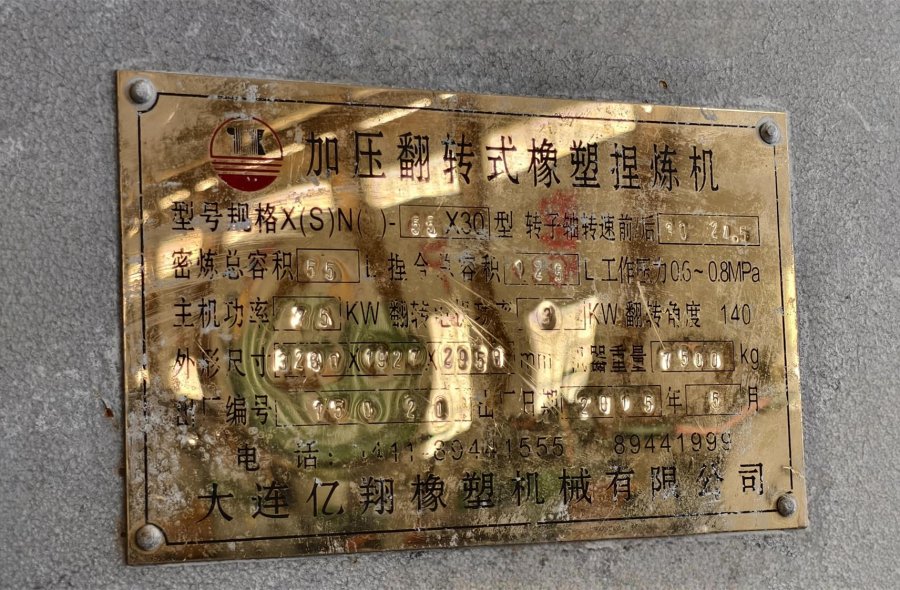 加压翻转式橡塑捏炼机
型号规格X(S)N( )-55X30型 转子轴转速前/后 30 24.5
密炼总容积 55 L 捏合总容积 125 L 工作压力0.6~0.8MPa
主机功率 75 KW 翻转电机功率 3 KW 翻转角度 140
外形尺寸 X1927X mm 机器重量 7500 kg
出厂编号 出厂日期 2015年5月
电话: 0411-89441555 89441999
大连亿翔橡塑机械有限公司